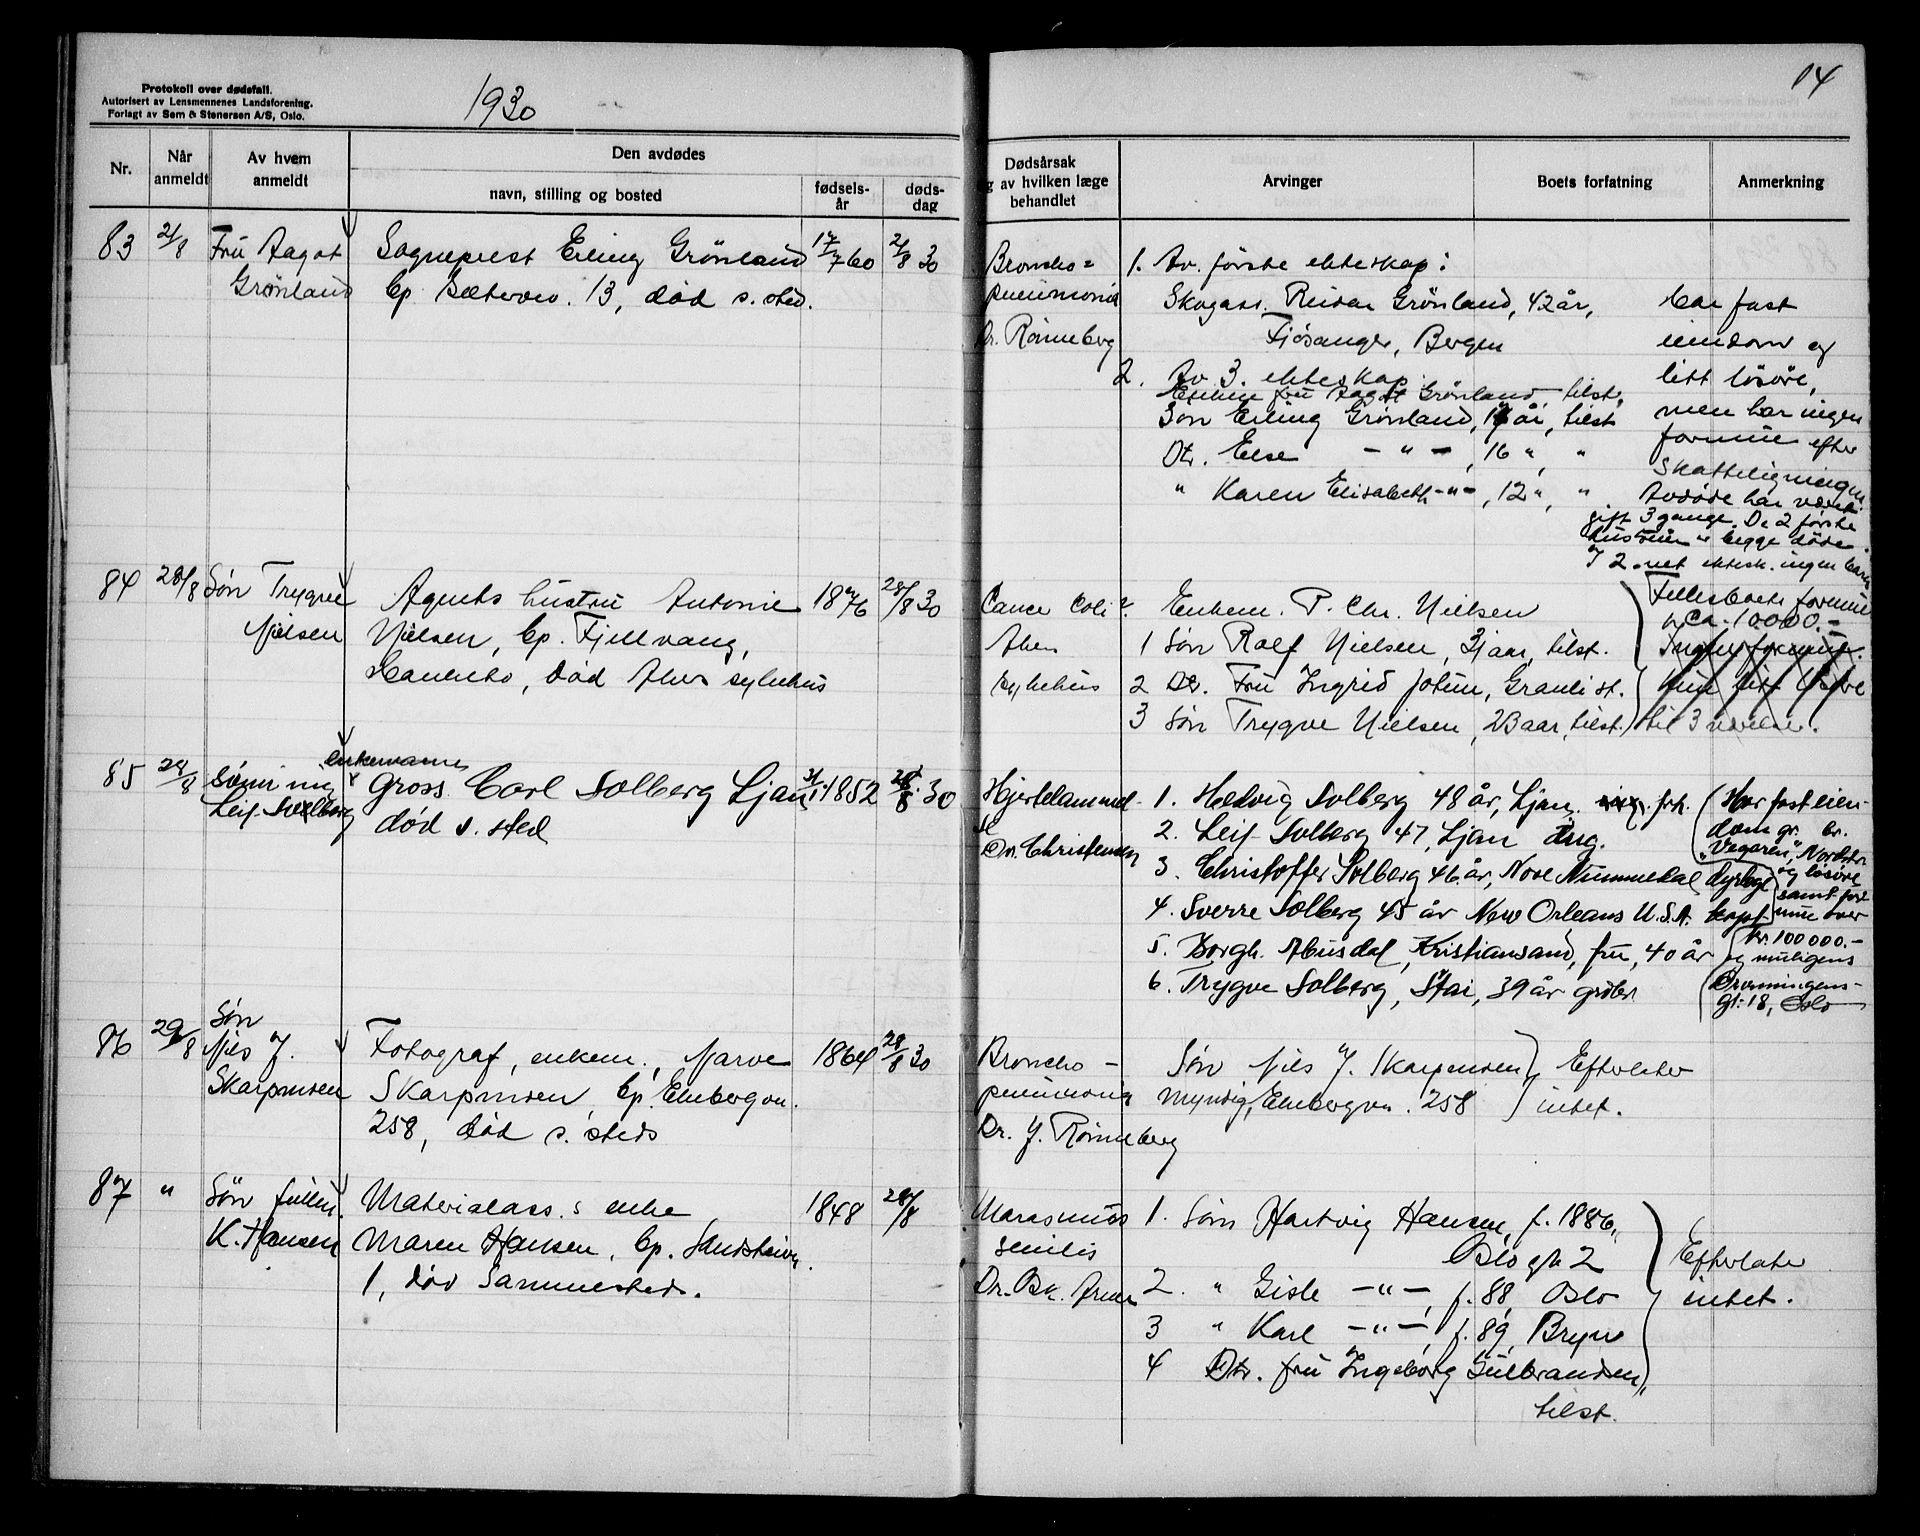 Protokoll over dødsfall.
Autorisert av Lensmennenes Landsforening.
Forlagt av Sem & Stenersen A/S, Oslo.
1930
14
Nr.
Når anmeldt
Av hvem anmeldt
Den avdødes
navn, stilling og bosted
fødsels-år
døds-dag
Dødsårsak
og av hvilken læge
behandlet
Arvinger
Boets forfatning
Anmerkning
83 21/8 Fru Aagot Sogneprest Erling Grönland 17/7 60 21/8 30
Grönland bp. 13, död s. sted.
Broncho=
pneumonia
Dr. Rönneberg
1. Av første ekteskap:
Skogass. Reidar Grönland, 42 år,
Fjösanger, Bergen
2. Av 3. ekteskap
Enken fru Aagot Grönland, tilst.
Sön Erling Grönland, år, tilst
Dtr. Else - " - , 16 ", "
" Karen Elisabeth - " - , 12 ", "
har fast
eiendom og
litt lösöre,
men har ingen
formue efter
skatteligningen
Avdöde har været
gift 3 gange. De 2 første
hustruer er begge döde.
I 2. net ektesk. ingen barn
84 28/8 Sön Trygve Agents hustru Antonie 1876 28/8 30
Nielsen Nielsen, bp. Fjellvang,
Hauketo, död Akers sykehus
Cancer Coli
Akers
sykehus
Enkem. P. Chr. Nielsen
1 Sön Ralf Nielsen, 31 aar, tilst.
2 Dtr. Fru Ingrid Jotun, Granli st.
3 Sön Trygve Nielsen, 23 aar, tilst.
Fellesboets formue
er ca. 10000.-
Ingen formue.
Kun litt lösöre
til 3
85 28/8 Sönn ing enkemann
Leif Solberg Gross. Carl Solberg Ljan 1852 28/8 30
död s. sted
Hjertelammelse
Dr. Christensen
1. Hedvig Solberg 48 år, Ljan, frk.
2. Leif Solberg 47, Ljan ing.
3. Christoffer Solberg 46 år, Nore Nummedal dyrlege
4. Sverre Solberg 45 år New Orleans U.S.A. kapt.
5. Borgh. Abusdal, Kristiansand, fru, 40 år
6. Trygve Solberg, Stai, 39 år gröbr
Har fast eien-
dom gr. br.
"Vegaren", Nordstr.
og lösöre
samt for-
mue over
kr. 100000.-
og muligens
Dronningens-
gt. 18, Oslo
86 29/8 Sön
Nils J. Fotograf, enkem., Narve 1864 28/8 30
Skarpmoen Skarpmoen, bp. Ekebergvn.
258, död s. steds
Broncho-
pneumonia
Dr. J. Rönneberg
Sön Nils J. Skarpmoen
myndig, Ekebergvn. 258
Efterlater
intet.
87 " Sön fullm. Materialass.s enke 1848 28/8
K. Hansen Maren Hansen, bp.
1, död sammesteds.
Marasmus
senilis
Dr. Osk.
1. Sön Hartvig Hansen, f. 1886,
Oslo gt. 2
2. " Gisle - " - , f. 88, Oslo
3 " Karl - " - , f. 89, Bryn
4 Dtr. fru Ingeborg Gulbrandsen,
tilst.
Efterlater
intet.